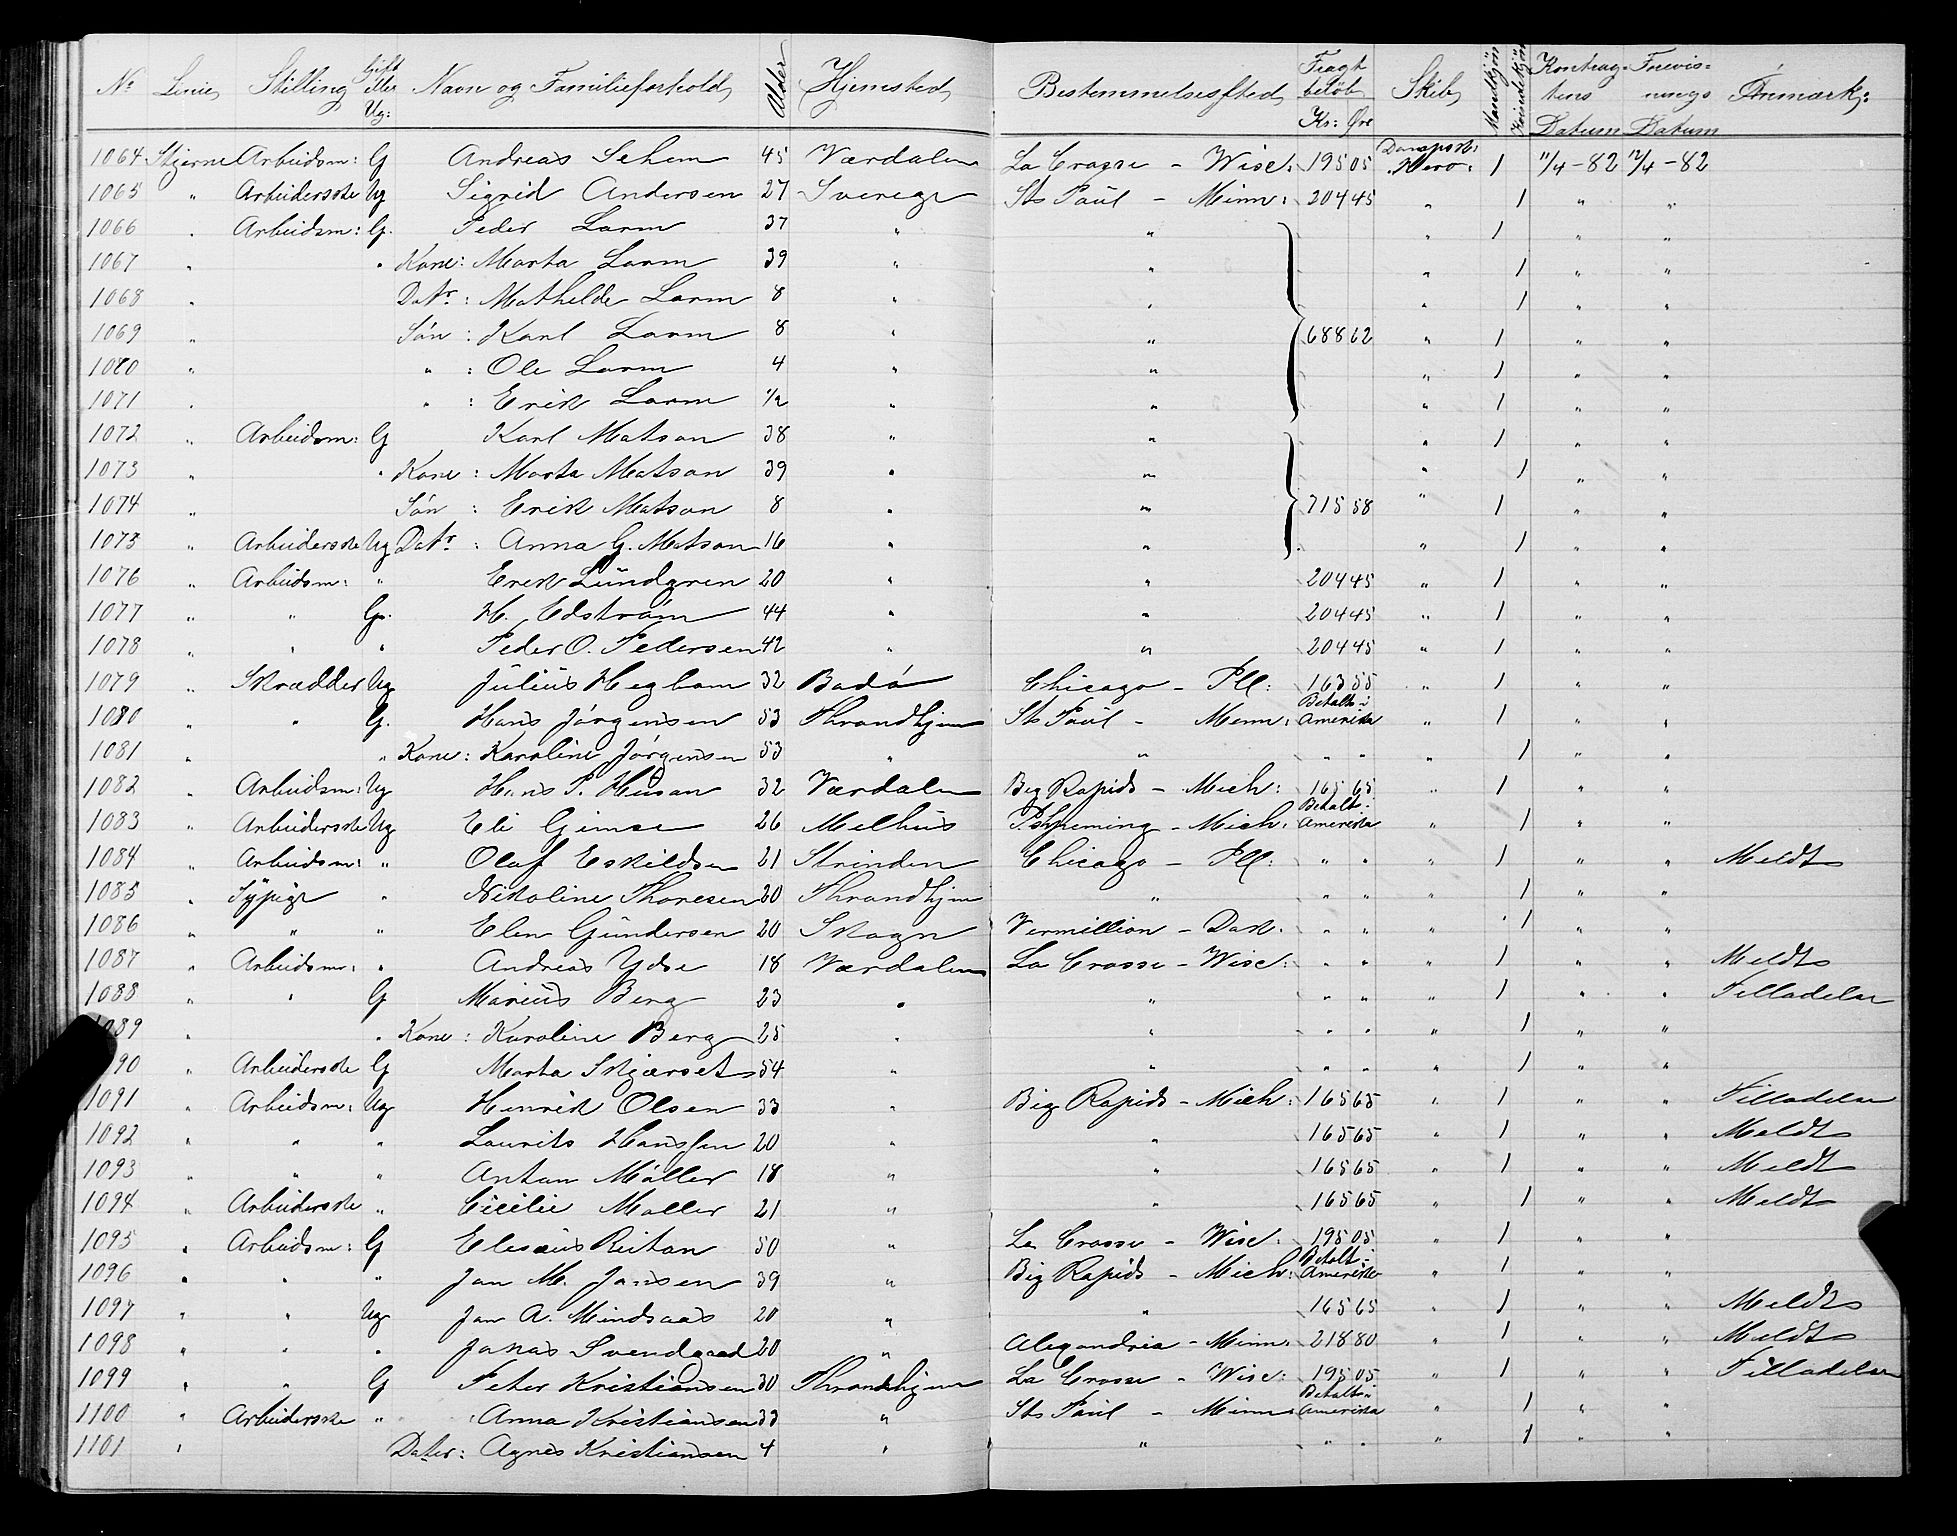 No Linie Stilling Gift eller Ug: Navn og Familieforhold Alder Hjemsted Bestemmelsessted Fragt beløb Kr: Øre Skib Mandkjøn Kvindekjøn Kontraktens Datum Forevisnings Datum Anmærk:
1064 Stjerne Arbeidsm: G Andreas Sehem 45 Værdalen La Crosse - Wisc: 195 05 Dampsk: Hero: 1 11/4-82 12/4-82
1065 " Arbeiderske Ug Sigrid Andersen 27 Sverege St Paul - Minn: 204 45 " 1 " "
1066 " Arbeidsm: G. Peder Larm 37 " " " 1 " "
1067 " " Kone: Marta Larm 39 " " " 1 " "
1068 " Datr: Mathilde Larm 8 " " " 1 " "
1069 " Søn: Karl Larm 8 " " 688 62 " 1 " "
1070 " " : Ole Larm 4 " " " 1 " "
1071 " " : Erik Larm 1/2 " " " 1 " "
1072 " Arbeidsm: G Karl Matson 38 " " " 1 " "
1073 " " Kone: Marta Matson 39 " " " 1 " "
1074 " Søn: Erik Matson 8 " " 715 58 " 1 " "
1075 " Arbeiderske Ug Datr: Anna G. Matson 16 " " " 1 " "
1076 " Arbeidsm: " Erik Lundgren 20 " " 204 45 " 1 " "
1077 " " G. H. Edstrøm 44 " " 204 45 " 1 " "
1078 " " " Peder O. Pedersen 42 " " 204 45 " 1 " "
1079 " Skrædder Ug Julius Hegbom 32 Bodø Chicago - Ill: 163 55 " 1 " "
1080 " " G. Hans Jørgensen 53 Throndhjem St Paul - Minn: Betalt i Amerika " 1 " "
1081 " " Kone: Karoline Jørgensen 53 " " " " " 1 " "
1082 " Arbeidsm: Ug Hans P. Husan 32 Værdalen Big Rapids - Mich: 165 65 " 1 " "
1083 " Arbeiderske Ug Eli Gimse 26 Melhus Ishpeming - Mich: Betalt i Amerika " 1 " "
1084 " Arbeidsm: " Olaf Eskildsen 21 Strinden Chicago - Ill: " " " 1 " " Meldt
1085 " Sypige " Nikoline Thoresen 20 Throndhjem " " " " 1 " "
1086 " " " Elen Gundersen 20 Skogn Vermillion - Dak: " " " 1 " "
1087 " Arbeidsm: " Andreas Ydse 18 Værdalen La Crosse - Wisc: " " " 1 " " Meldt
1088 " " G Marius Berg 23 " " " " " 1 " " Filladelar
1089 " " Kone: Karoline Berg 25 " " " " " 1 " "
1090 " Arbeiderske G Marta Skjærset 54 " " " " " 1 " "
1091 " Arbeidsm: Ug Henrik Olsen 33 " Big Rapids - Mich: 165 65 " 1 " " Filladelar
1092 " " " Laurits Hanssen 20 " " 165 65 " 1 " " Meldt
1093 " " " Anton Møller 18 " " 165 65 " 1 " " Meldt
1094 " Arbeiderske " Cicilie Møller 21 " " 165 65 " 1 " " Meldt
1095 " Arbeidsm: G Eliseus Reitan 50 " La Crosse - Wisc: 195 05 " 1 " "
1096 " " " Jon M. Jansen 39 " Big Rapids - Mich: Betalt i Amerika " 1 " "
1097 " " Ug Jon A. Mindsaas 20 " " 165 65 " 1 " " Meldt
1098 " " " Jonas Svendgaad 20 " Alexandria - Minn: 218 80 " 1 " " Meldt
1099 " " G Peter Kristiansen 30 Throndhjem La Crosse - Wisc: 195 05 " 1 " " Filladelar
1100 " Arbeiderske " Anna Kristiansen 33 " St Paul - Minn: Betalt i Amerika " 1 " "
1101 " Dater: Agnes Kristiansen 4 " " " " " 1 " "